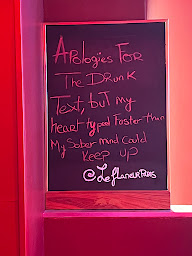 Apologies For
The Drunk
Text, but my
heart typed Faster than
My Sober mind Could
Keep up